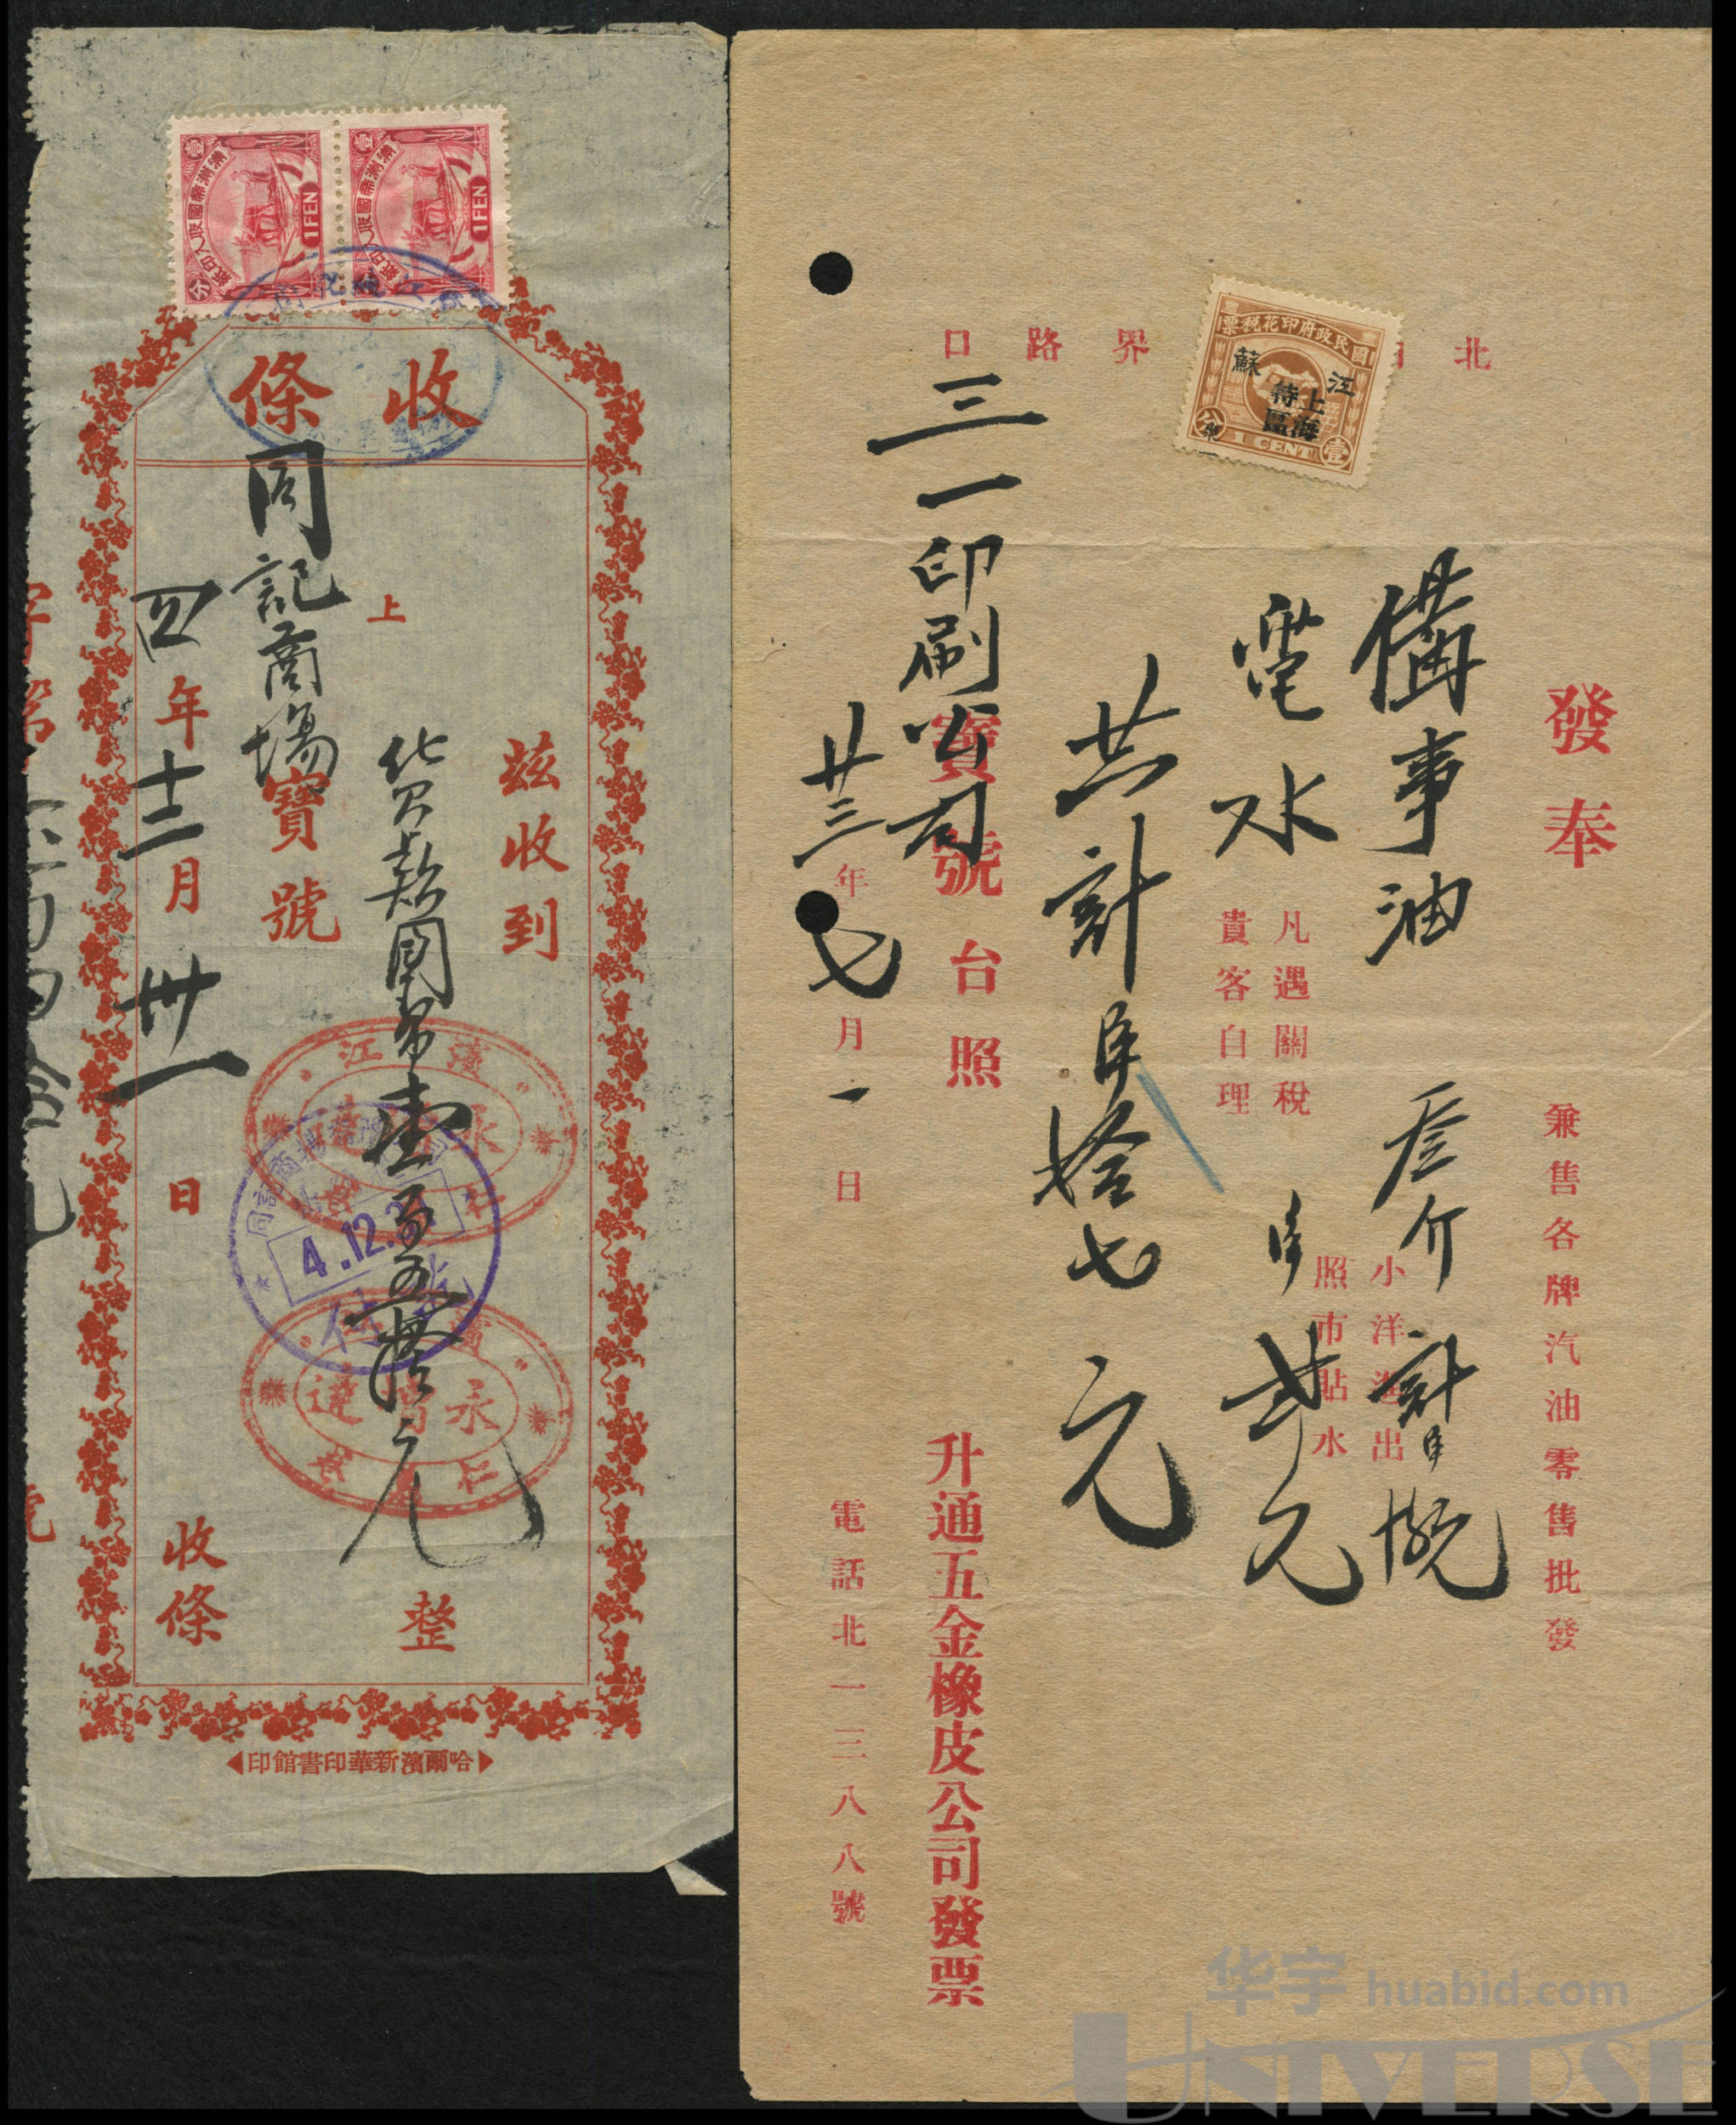 收條
同記商場
上
寶號
茲收到
貨款國幣壹百五拾元
整
四年十二月卅一日
收條
哈爾濱新華印書館印
滿洲帝國收入印紙
壹分
1 FEN
滿洲帝國收入印紙
壹分
1 FEN
濱江
永
仁
4.12.31
付
濱江
永增達
仁
字第
號
北
界路口
國民政府印花稅票
江蘇
上海特區
壹分
1 CENT
發奉
兼售各牌汽油零售批發
備事油
叁介
計
電水
元
凡遇關稅
貴客自理
小洋進出
照市貼水
共計
拾七元
三一印刷公司
寶號台照
升通五金橡皮公司發票
廿三年七月一日
電話北一三八八號
华宇 huabid.com
UNIVERSE